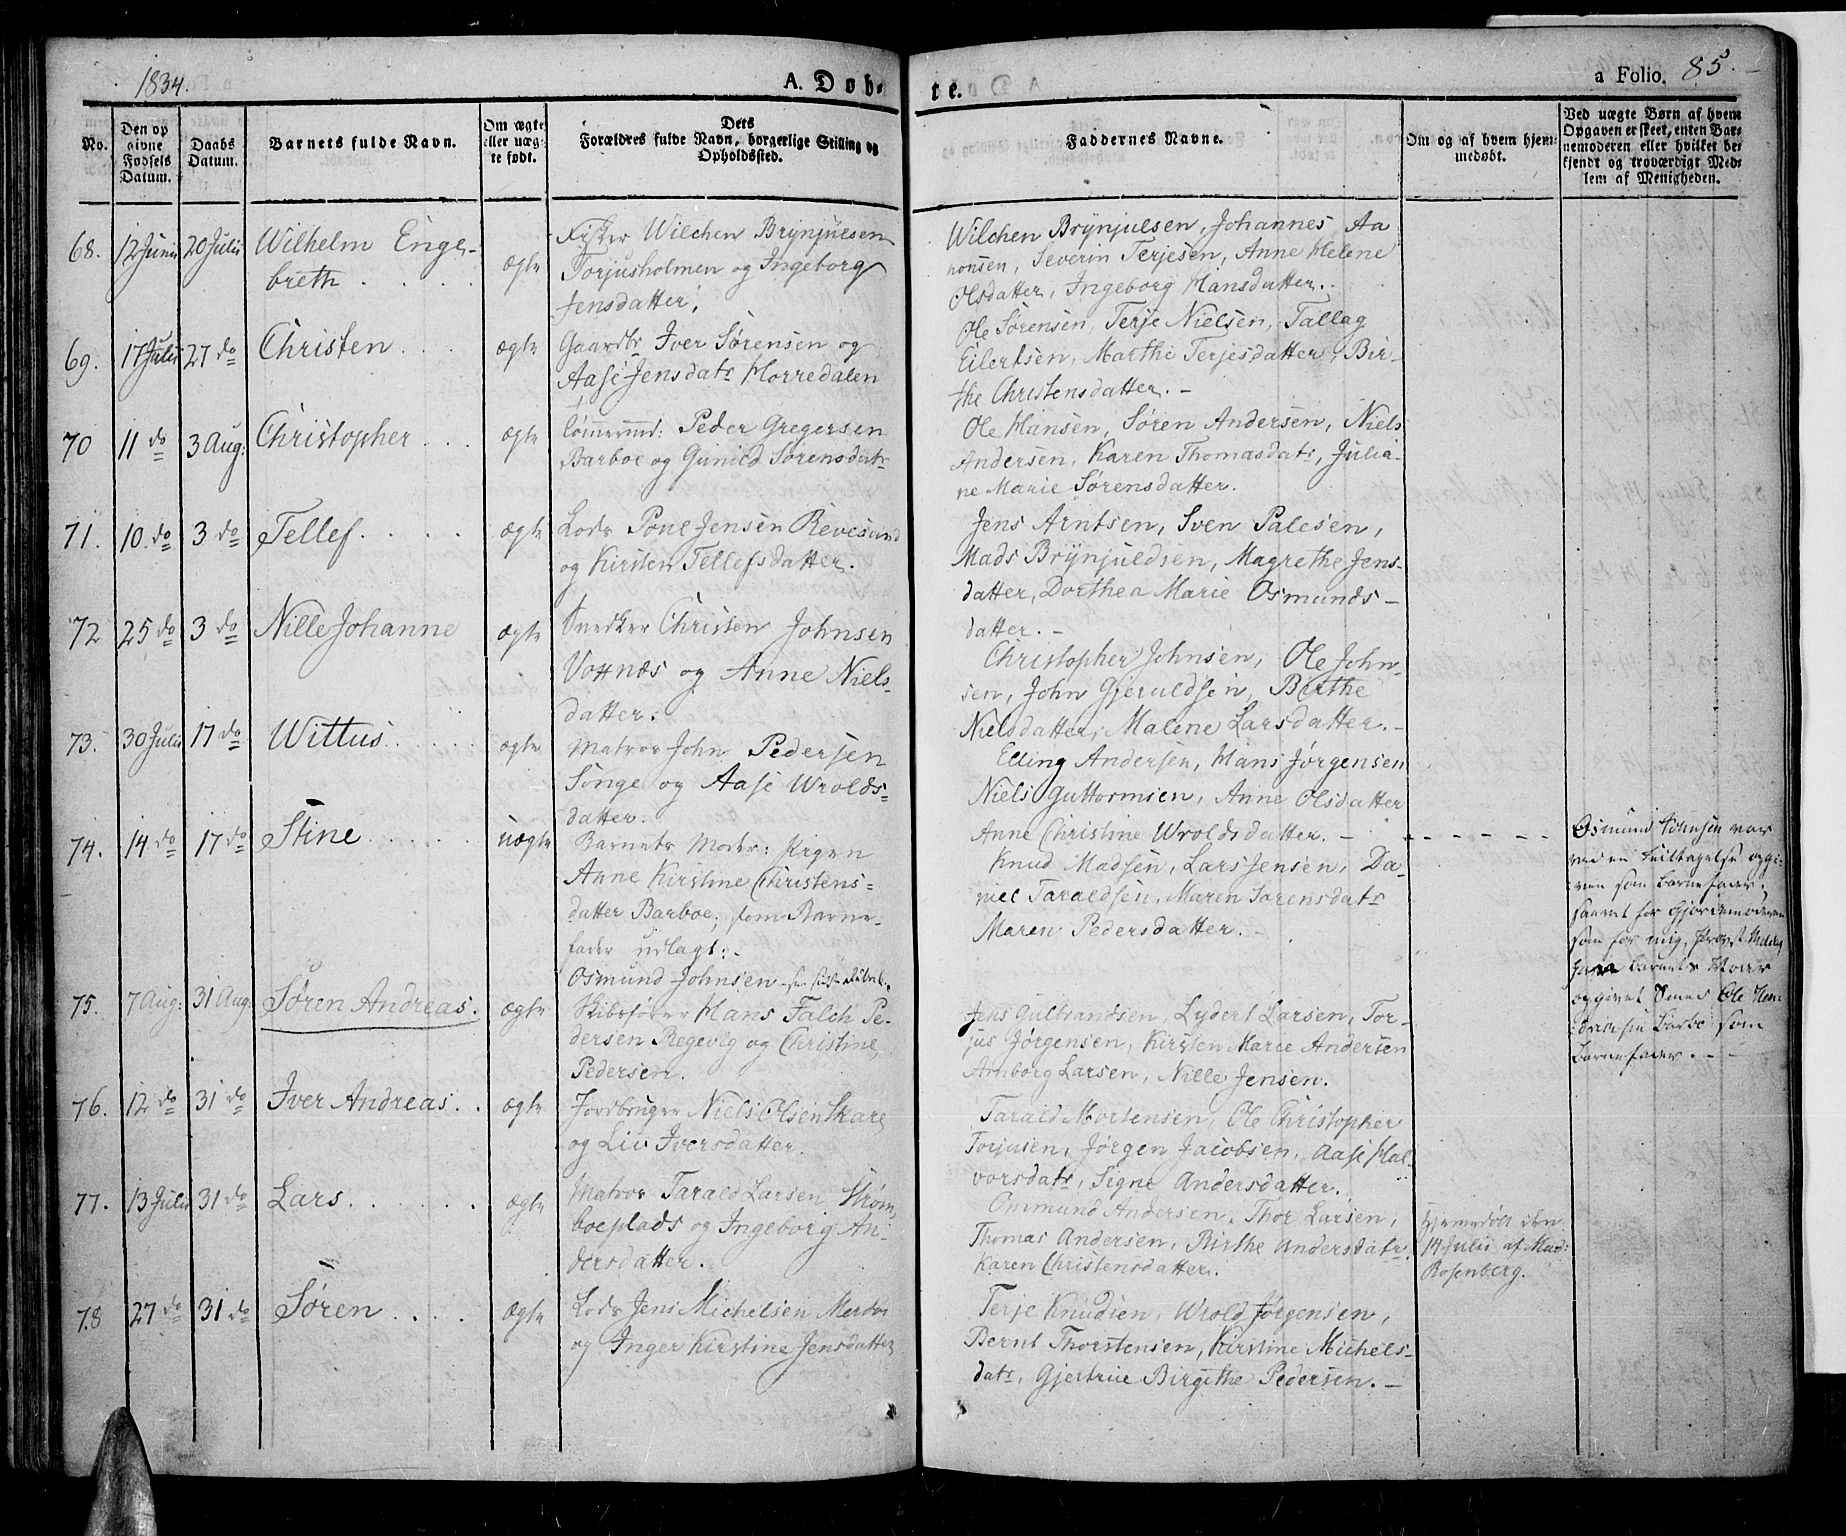 1834.
A. Døb-
te.
a Folio. 85.
No.
Den op
givne
Fødsels
Datum.
Daabs
Datum.
Barnets fulde Navn.
Om ægte
eller uæg-
te født.
Dets
Forældres fulde Navn, borgerlige Stilling og
Opholdssted.
Faddernes Navne.
Om og af hvem hjem-
medøbt.
Ved uægte Børn af hvem
Opgaven er skeet, enten Bar-
nemoderen eller hvilket be-
kjendt og troværdigt Med-
lem af Menigheden.
68. 12 Junii 20 Julii Wilhelm Enge-
breth . . . . ægte
Fisker Wilchen Brynjulsen
Torjusholmen og Ingeborg
Jensdatter.
Wilchen Brynjulsen, Johannes Aa
nonsen, Severin Terjesen, Anne Helene
Olsdatter, Ingeborg Hansdatter.
69. 17 Julii 27 do Christen . . . ægte
Gaardbr Iver Sørensen og
Aase Jensdatr Horredalen
Ole Sørensen, Terje Nielsen, Tallag
Eilertsen, Marthe Terjesdatter, Bir-
the Christensdatter. -
70 11 do 3 Aug: Christopher . . . ægte
Tømmermd: Peder Gregersen
Barboe og Gunild Sørensdatr
Ole Hansen, Søren Andersen, Niels
Andersen, Karen Thomasdatr, Julia-
ne Marie Sørensdatter.
71. 10. do 3 do Tellef . . . . ægte
Lods Poul Jensen Revesand
og Kirsten Tellefsdatter.
Jens Arntsen, Sven Palesen,
Mads Brynjuldsen, Magrethe Jens-
datter, Dorthea Marie Osmunds-
datter. -
72 25 do 3 do Nille Johanne ægte
Snedker Christen Johnsen
Voxnæs og Anne Niels-
datter.
Christopher Johnsen, Ole John-
sen, John Gjeruldsen, Birthe
Nielsdatter, Malene Larsdatter. -
73. 30 Julii 17 do Wittus . . . . ægte
Matros John Pedersen
Songe og Aase Wrolds-
datter.
Elling Andersen, Hans Jørgensen
Niels Guttormsen, Anne Olsdatter
Anne Christine Wroldsdatter. -
74. 14 do 17 do Stine . . . . . uægte
Barnets Moder: Pigen
Anne Kirstine Christens-
datter Barboe, som Barne-
fader udlagt:
Osmund Johnsen
Knud Madsen, Lars Jensen, Da-
niel Taraldsen, Maren Sørensdatr
Maren Pedersdatter. -
Osmund Johnsen var
ved en feiltagelse opgi-
ven som Barnefader,
saavel for Gjordemoderen
som for mig,
har Barnets Moder
opgivet Ole Hen
Barbo som
Barnefader. -
75. 7 Aug: 31 Aug: Søren Andreas. ægte
Skibsfører Hans Falch Pe-
dersen Regevig og Christine
Pedersen.
Jens Gulbrandsen, Lydert Larsen, Tor-
jus Jørgensen, Kirsten Marie Andersen
Anborg Larsen, Nille Jensen.
76. 12 do 31 do Iver Andreas. . ægte
Jordbruger Niels Olsen Skare
og Liv Iversdatter.
Tarald Mortensen, Ole Christopher
Torjusen, Jørgen Jacobsen, Aase Hal-
vorsdatr, Signe Andersdatter.
77. 13 Julii 31 do Lars . . . . . . ægte
Matros Tarald Larsen Strøm
boeplads og Ingeborg An-
dersdatter.
Ommund Andersen, Thor Larsen,
Thomas Andersen, Birthe Andersdatr.
Karen Christensdatter.
Hjemmedøbt den
14 Julii af Mad:
Rosenberg.
78 27 do 31 do Søren . . . . ægte
Lods Jens Michelsen Merdøe
og Inger Kirstine Jensdatter
Terje Knudsen, Wrold Jørgensen,
Bernt Thorstensen, Kirstine Michels-
datr, Gjertrue Birgithe Pedersen. -